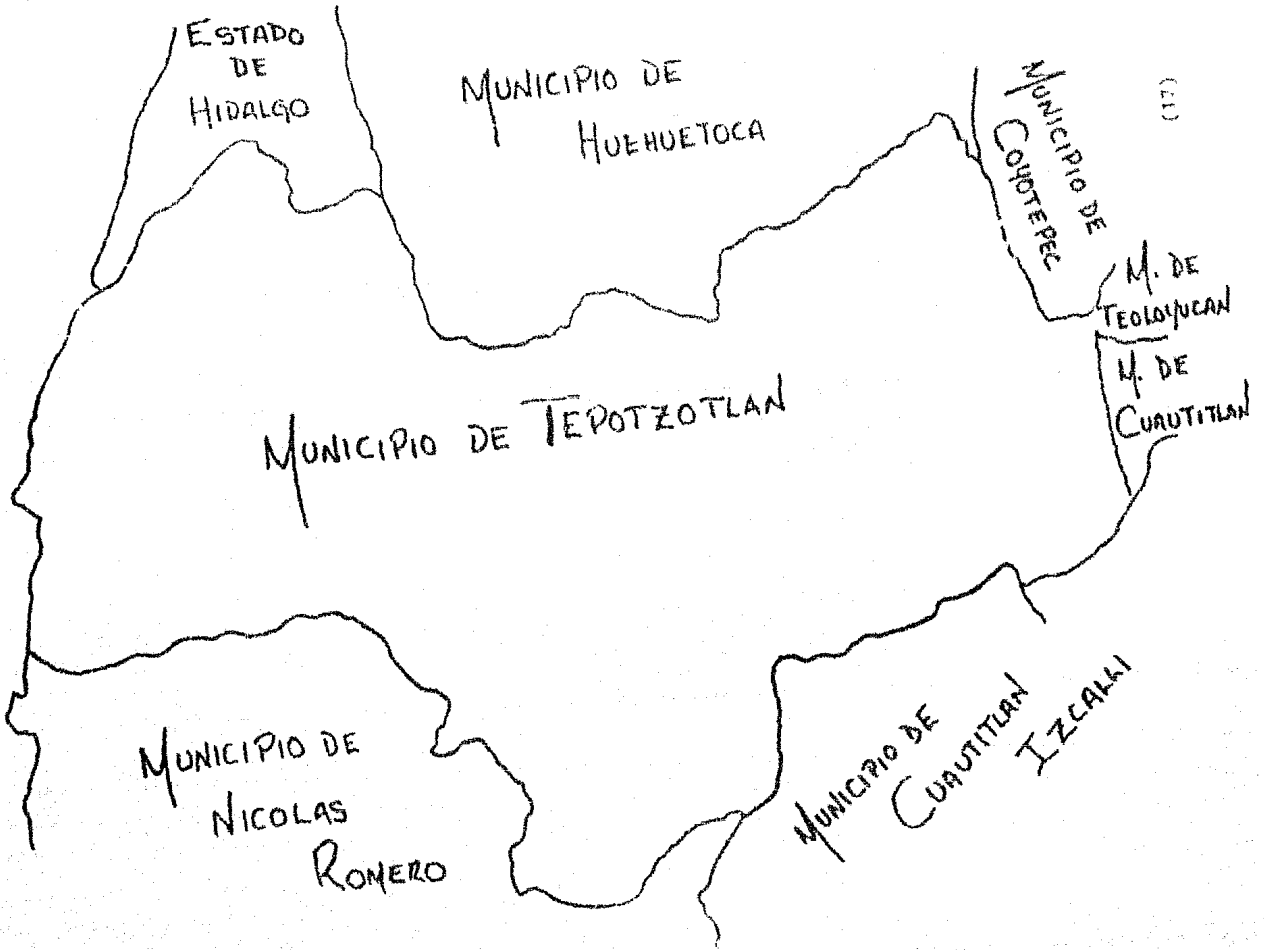 ESTADO
DE
HIDALGO
MUNICIPIO DE
HUEHUETOCA
MUNICIPIO DE
COYOTEPEC
(17)
M. DE
TEOLOYUCAN
M. DE
CUAUTITLAN
MUNICIPIO DE TEPOTZOTLAN
MUNICIPIO DE
NICOLAS
ROMERO
MUNICIPIO DE
CUAUTITLAN
IZCALLI